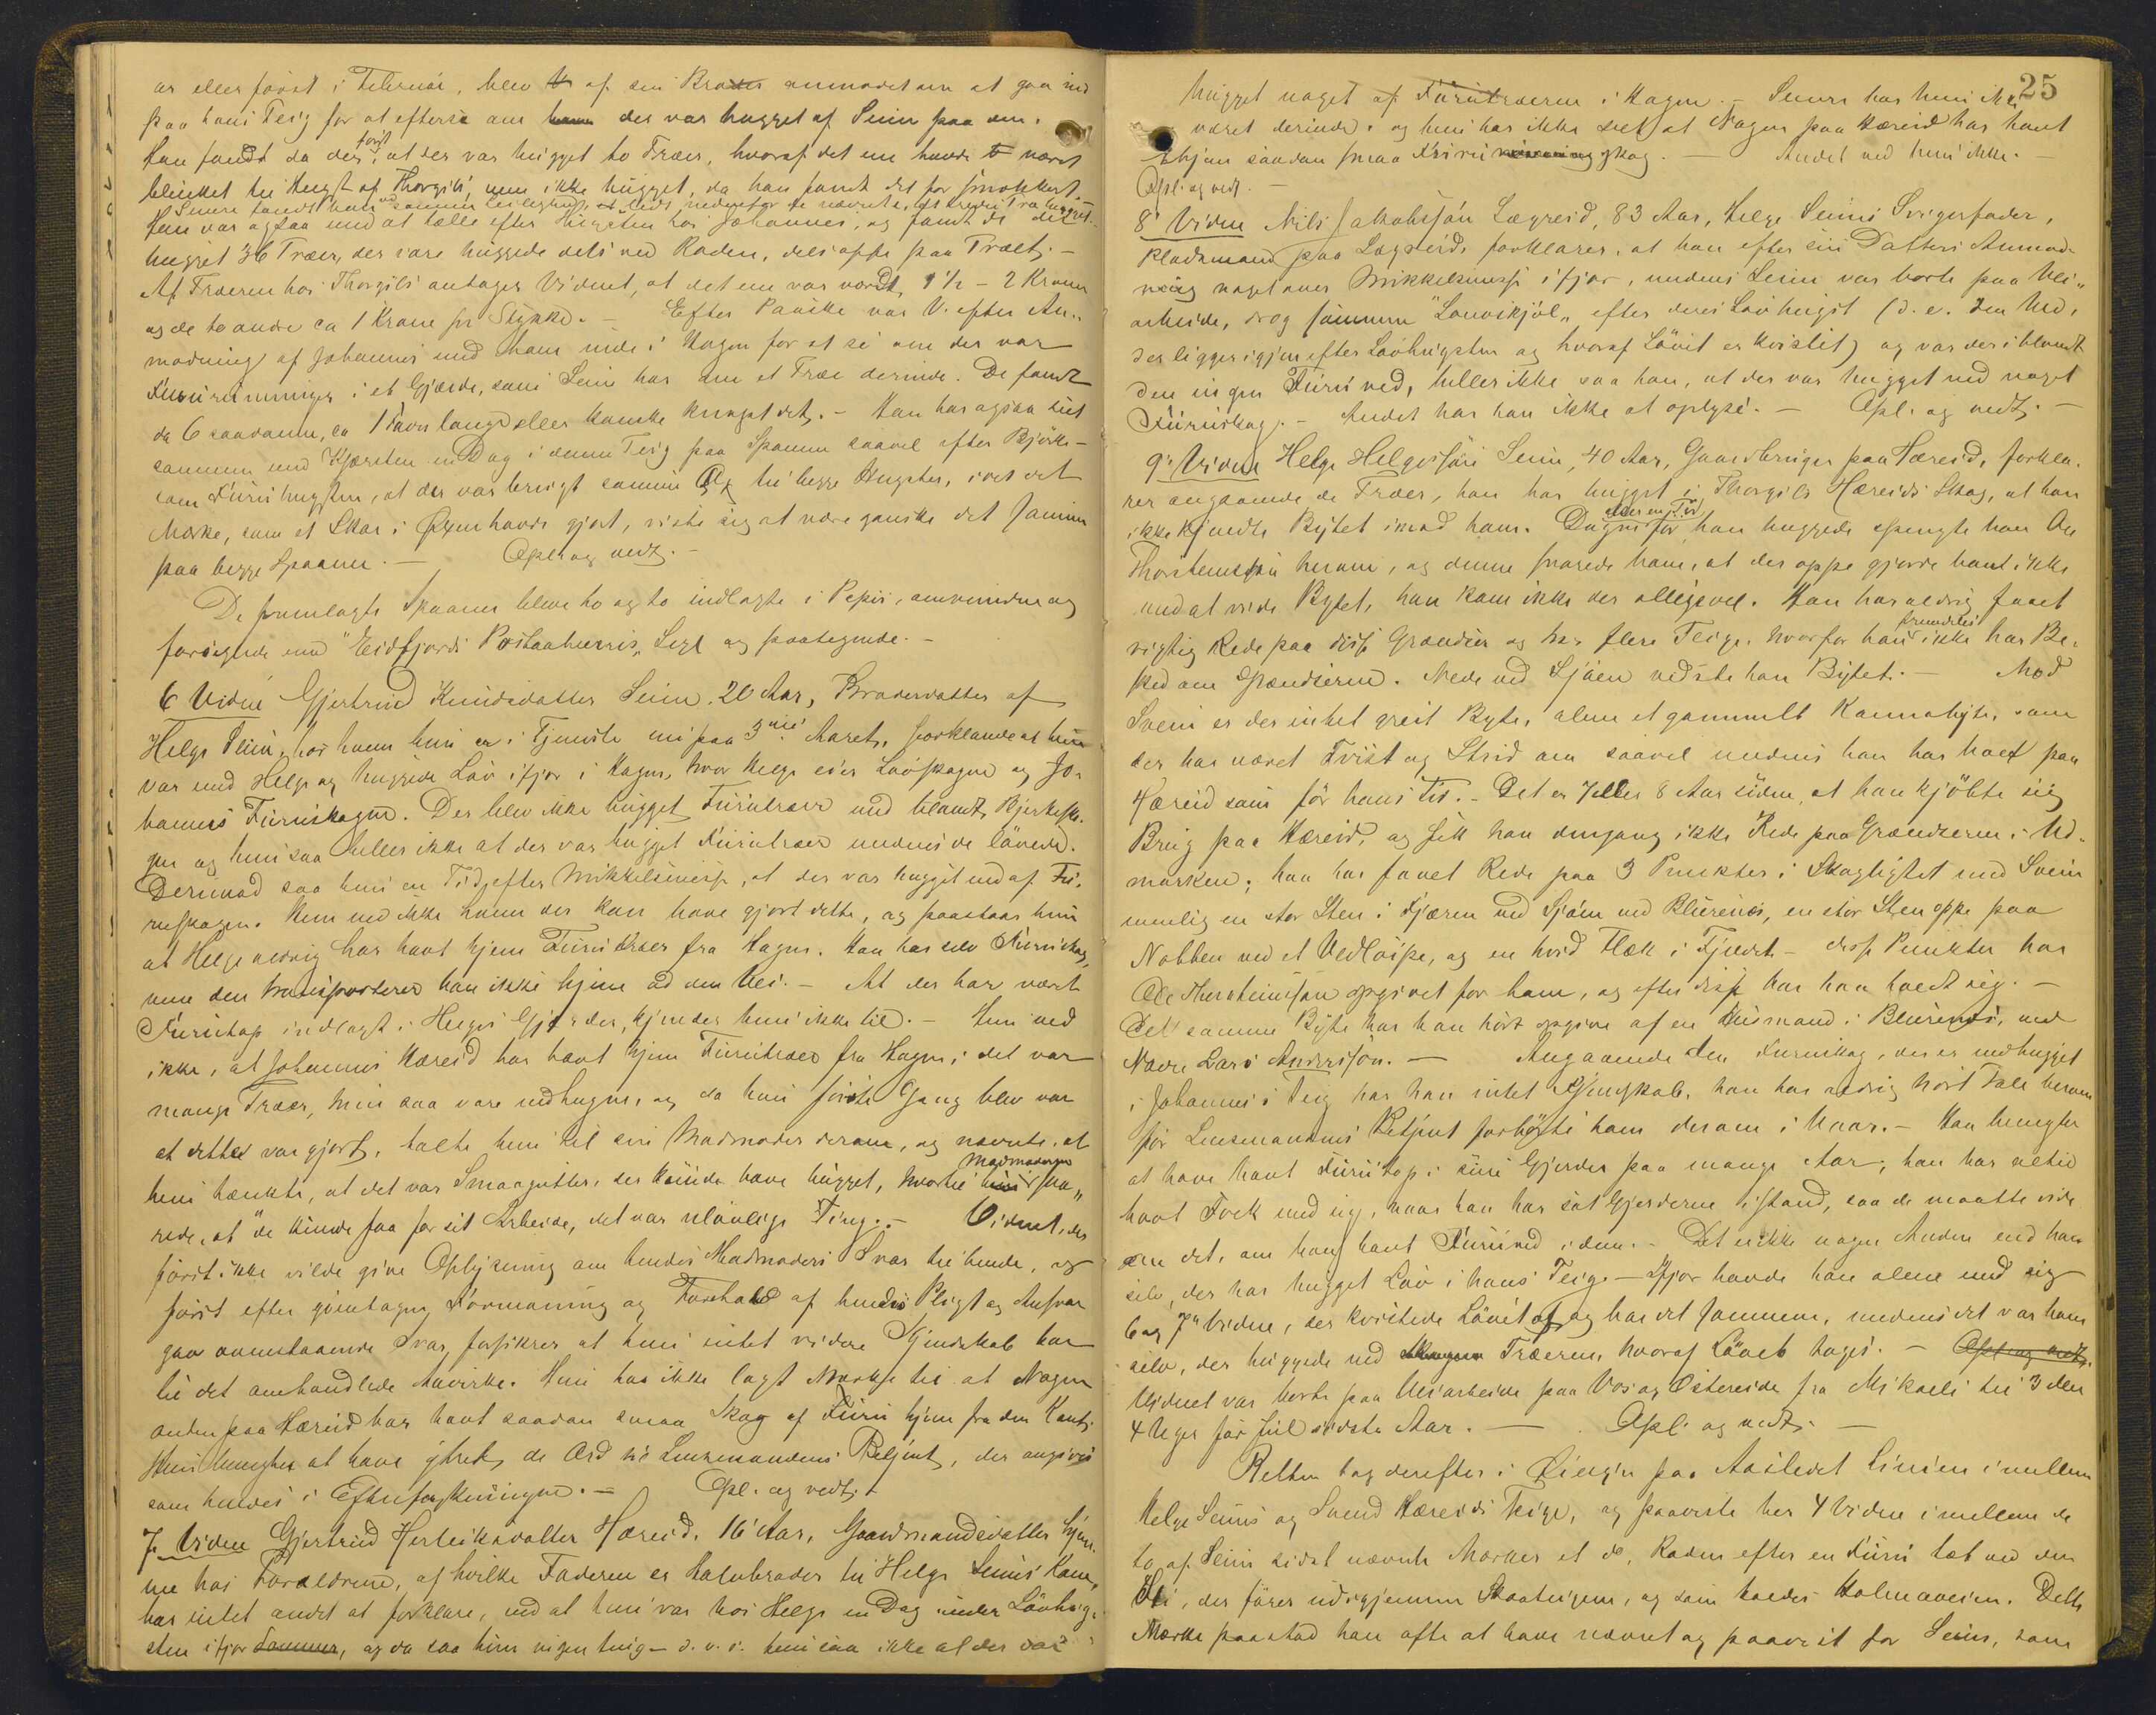 ar eller först i Februar, blev af sin Broder anmodet om at gaa ind
paa hans Teig for at efterse om der var hugget af Seim paa den.
Han fandt da der först, at der var hugget to Træer, hvoraf det ene havde været
blinket til Hugst af Thorgils, men ikke hugget, da han fandt det for
Senere fandt han ved samme Leilighed, et Sted nedenfor de nævnte, det tredie Træ hugget.
Han var ogsaa med at tælle efter Hugsten hos Johannes, og fandt de der
hugget 36 Træer, der vare huggede dels ved Raden, dels oppe paa Træet. -
Af Træerne hos Thorgils antager Vidnet, at det ene var værdt 1 1/2 - 2 Kroner
og de to andre ca 1 Krone pr Stykke. - Efter Paaske var V. efter An-
modning af Johannes med ham inde i Hagen for at se om der var
Furu i et Gjærde, som Seim har om et Træ derinde. De fandt
da 6 saadanne, ca 1 Favn lange eller kanske knapt det. - Han har ogsaa set
sammen med Kjærsten en Dag i denne Teig paa Spaanen saavel efter Björke-
som Furuhugsten, at der var brugt samme Öx til begge Hugster, idet det
Mærke, som et Skar i Öxen havde gjort, viste sig at være ganske det samme
paa begge Spaaner. - Opl. og vedt. -
De fremlagte Spaaner bleve to og to indlagte i Papir, omvundne og
forseglede med "Eidfjords Postaabneris" Segl og paategnede. -
6 Vidne Gjertrud Knudsdatter Seim, 20 Aar, Broderdatter af
Helge Seim, hos hvem hun er i Tjeneste nu paa 3die Aaret, forklarede at hun
var med Helge og huggede Löv ifjor i Hagen, hvor Helge eier Lövskogen og Jo-
hannes Furuskogen. Der blev ikke hugget Furutræer ned blandt Bjerkesko-
gen og hun saa heller ikke at der var hugget Furutræer medens de lövede.
Derimod saa hun en Tid efter Mikkelsmess, at der var hugget ned af Fu-
ruskogen. Hun ved ikke hvem der kan have gjort dette, og paastaar hun
at Helge aldrig har havt hjem Furutræer fra Hagen. Han har selv Furuskog,
men den transporterer han ikke hjem ad den Vei. - At der har været
Furutop indlagt i Helges Gjærder, kjender hun ikke til. - Hun ved
ikke, at Johannes Hæreid har havt hjem Furutræer fra Hagen; det var
mange Træer, hun saa vare nedhugne, og da hun förste Gang blev var
at dette var gjort, talte hun til sin Madmoder derom, og nævnte, at
hun tænkte, at det var Smaagutter, der kunde have hugget, hvortil Madmoderen sva-
rede, at "de kunde faa for sit Arbeide, det var ulovlige Ting". - Vidnet, der
först ikke vilde give Oplysning om hendes Madmoders Svar til hende, og
först efter gjentagen Formaning og Forehold af hendes Pligt og Ansvar
gav ovenstaaende Svar, forsikrer at hun intet videre Kjendskab har
til det omhandlede Aavirke. Hun har ikke lagt Mærke til at Nogen
anden paa Hæreid har havt saadan smaa Skog af Furu hjem fra den Kant.
Hun benegter at have ytret de Ord til Lensmandens Betjent, der angives
som hendes i Efterforskningen. - Opl. og vedt. -
7. Vidne Gjertrud Herleiksdatter Hæreid, 16 Aar, Gaardmandsdatter hjem-
me hos Forældrene, af hvilke Faderen er Halvbroder til Helge Seims Kone,
har intet andet at forklare, end at hun var hos Helge en Dag under Lövhug-
sten ifjor Sommer, og da saa hun ingenting - d. v. s. hun saa ikke at der var
25
hugget noget af Furutræerne i Hagen. - Senere har hun ikke
været derinde; og hun har ikke set at Nogen paa Hæreid har havt
hjem saadan smaa Furuskog. - Andet ved hun ikke. -
Opl. og vedt. -
8' Vidne Nils Jakobssön Lægreid, 83 Aar, Helge Seims Svigerfader,
Pladsmand paa Lægreid, forklarer, at han efter sin Datters Anmod-
ning noget over Mikkelsmess ifjor, medens Seim var borte paa Vei-
arbeide, drog sammen "Lauvskjöl" efter deres Lövhugst (d. e. den Ved,
der ligger igjen efter Lövhugsten og hvoraf Lövet er kvistet) og var der iblandt
den ingen Furuved, heller ikke saa han, at der var hugget ned noget
Furuskog. - Andet har han ikke at oplyse. - Opl. og vedt. -
9' Vidne Helge Helgessön Seim, 40 Aar, Gaardbruger paa Hæreid, forkla-
rer angaaende de Træer, han har hugget i Thorgils Hæreids Skog, at han
ikke kjendte Bytet imod ham. Dagen eller en Tid för han huggede spurgte han Ole
Thorsteinssön herom, og denne svarede ham, at der oppe gjorde han ikke
ondt at vide Bytet, han kom ikke der alligevel. Han har aldrig faaet
rigtig Rede paa disse Grændser og har flere Teiger hvorfor han fremdeles ikke har Be-
sked om Grændserne. Nede ved Sjöen vidste han Bytet. - Mod
Svein er der intet greit Byte, alene et gammelt Kannabyte, som
der har været Tvist og Strid om saavel medens han har havt paa
Hæreid som för hans Tid. - Det er 7 eller 8 Aar siden, at han kjöbte sig
Brug paa Hæreid, og fik han dengang ikke Rede paa Grændserne i Ud-
marken; han har faaet Rede paa 3 Punkter i Skoglighet med Svein
nemlig en stor Sten i Fjæren ved Sjöen ved Blurenæs, en stor Sten oppe paa
Nobben ved et Vedlöipe, og en hvid Flæk i Fjeldet - disse Punkter har
Ole Thorsteinssön opgivet for ham, og efter disse har han holdt sig. -
Det samme Byte har han hört opgive af en Husmand i Blurenæs, ved
Navn Lars Anderssön. - Angaaende den Furuskog, der er nedhugget
i Johannes's Teig har han intet Kjendskab, han har aldrig hört Tale herom
för Lensmandens Betjent forhörte ham derom i Vaar. - Han benegter
at have havt Furutop i sine Gjerder paa mange Aar; han har altid
havt Folk med sig, naar han har sat Gjerderne istand, saa de maatte vide
om det, om han havt Furuved i dem. - Det er ikke nogen Anden end han
selv, der har hugget Löv i hans Teige - Ifjor havde han alene med sig
6 og 7' Vidne, der kvistede Lövet af og bar det sammen, medens det var ham
selv, der huggede ned Træerne, hvoraf Lövet toges. - Opl. og vedt.
Vidnet var borte paa Veiarbeide paa Vos og Östereide fra Mikaeli til 3 eller
4 Uger för Jul sidste Aar. - Opl. og vedt. -
Retten tog derefter i Öiesyn paa Aastedet Linien imellem
Helge Seims og Svend Hæreids Teige, og paaviste her 4 Vidne imellem de
to af Seim sidst nævnte Mærker et do, Raden efter en Furu tæt ved den
Vei, der förer ud igjennem Skoateigene, og som kaldes Holmaveien. Dette
Mærke paastod han ofte at have nævnet og paavist for Seim, som